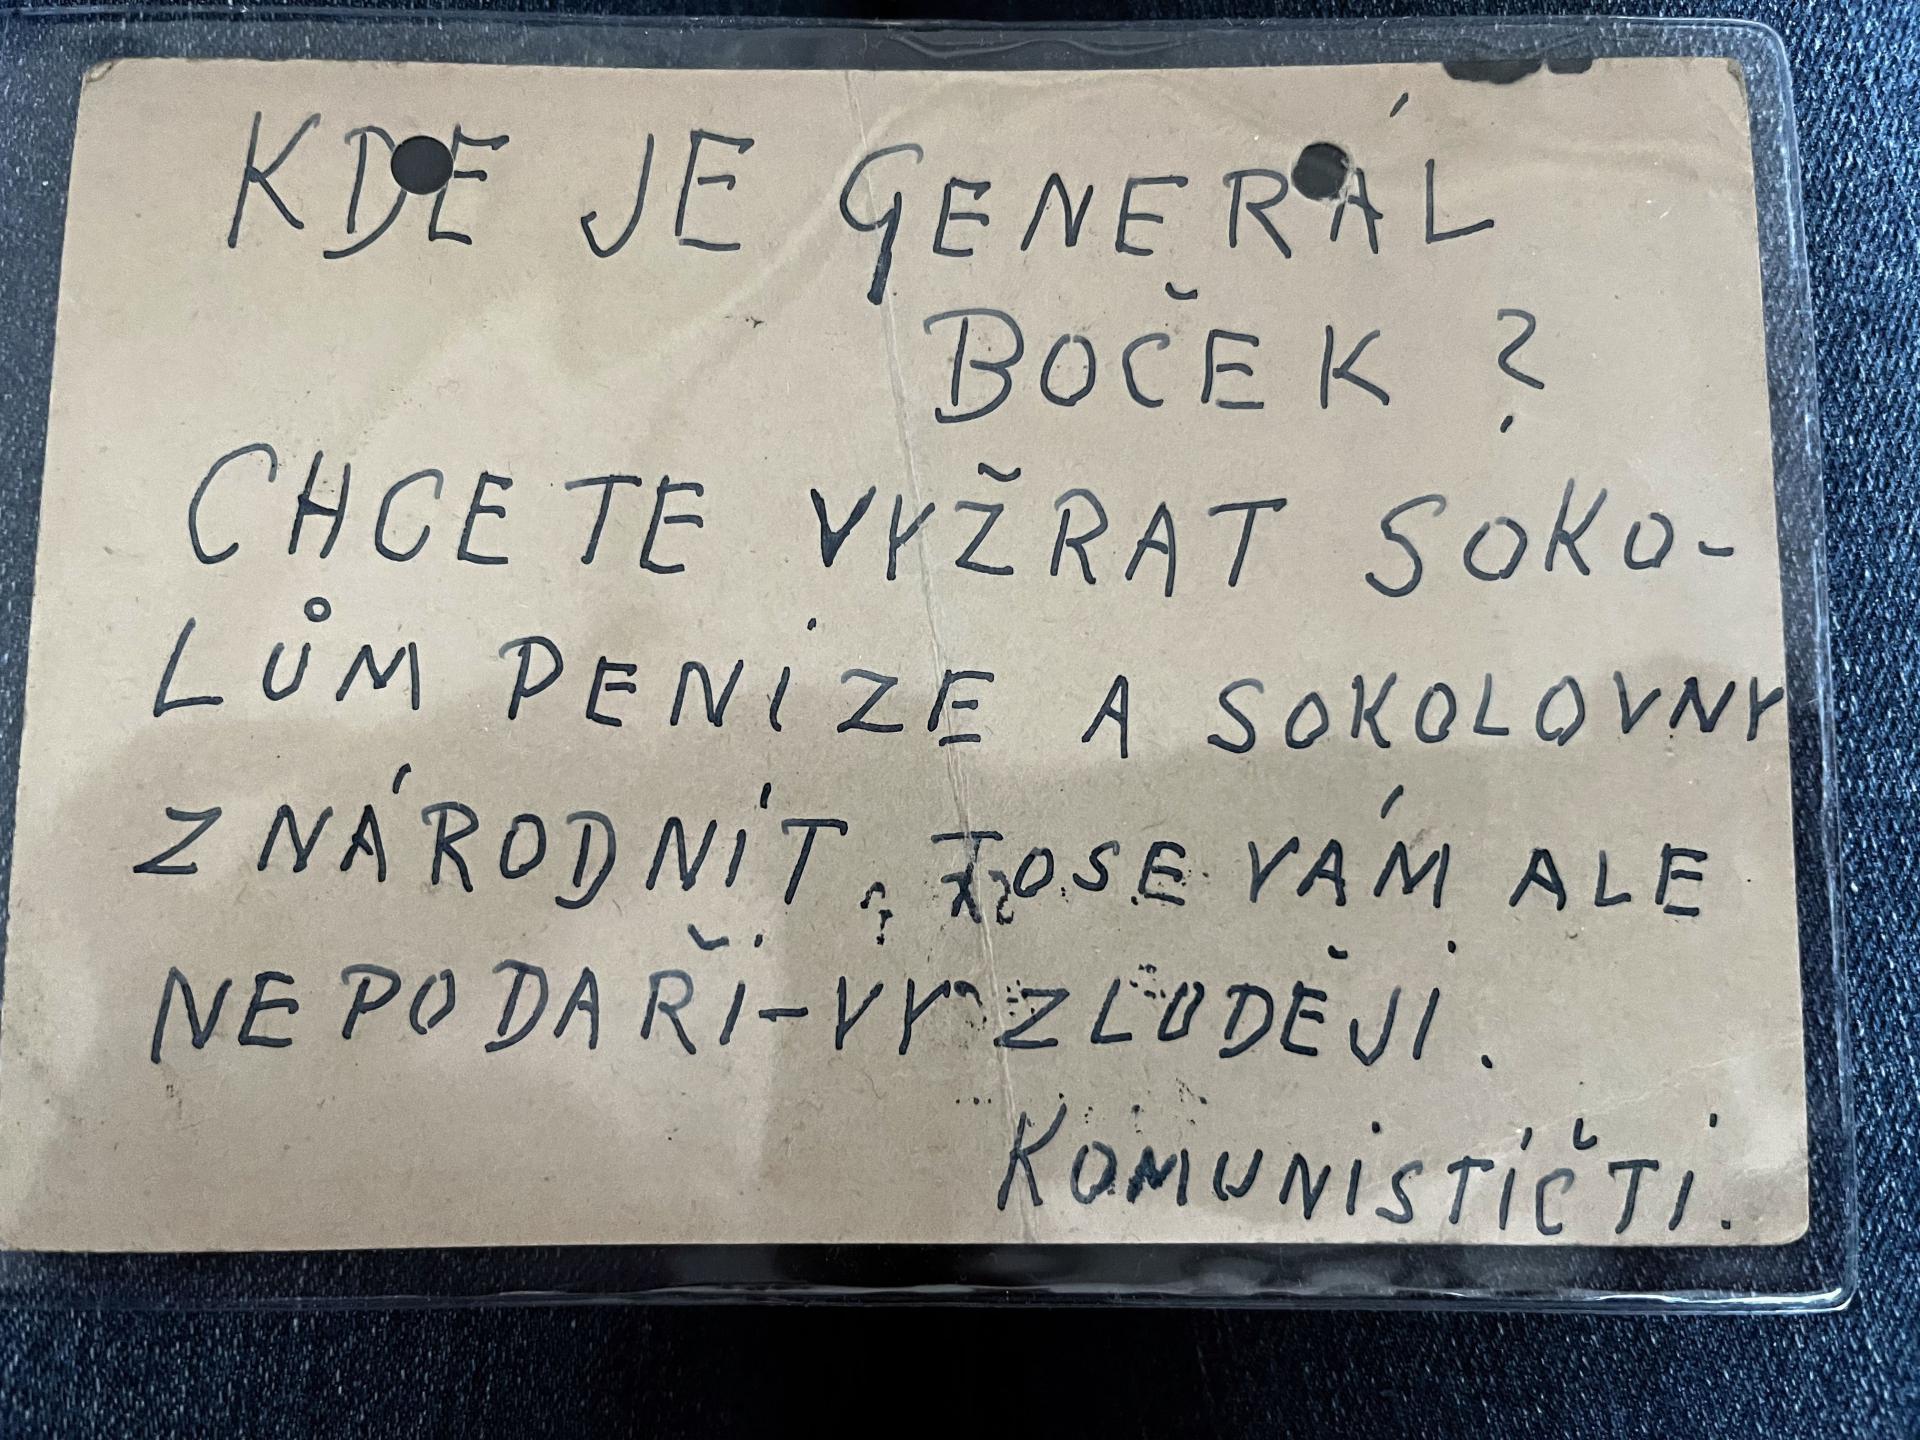 KDE JE GENERÁL
BOČEK ?
CHCETE VYŽRAT SOKO-
LŮM PENÍZE A SOKOLOVNY
ZNÁRODNÍT, TOSE VÁM ALE
NEPODAŘÍ-VY ZLODĚJI.
KOMUNISTÍČTI.